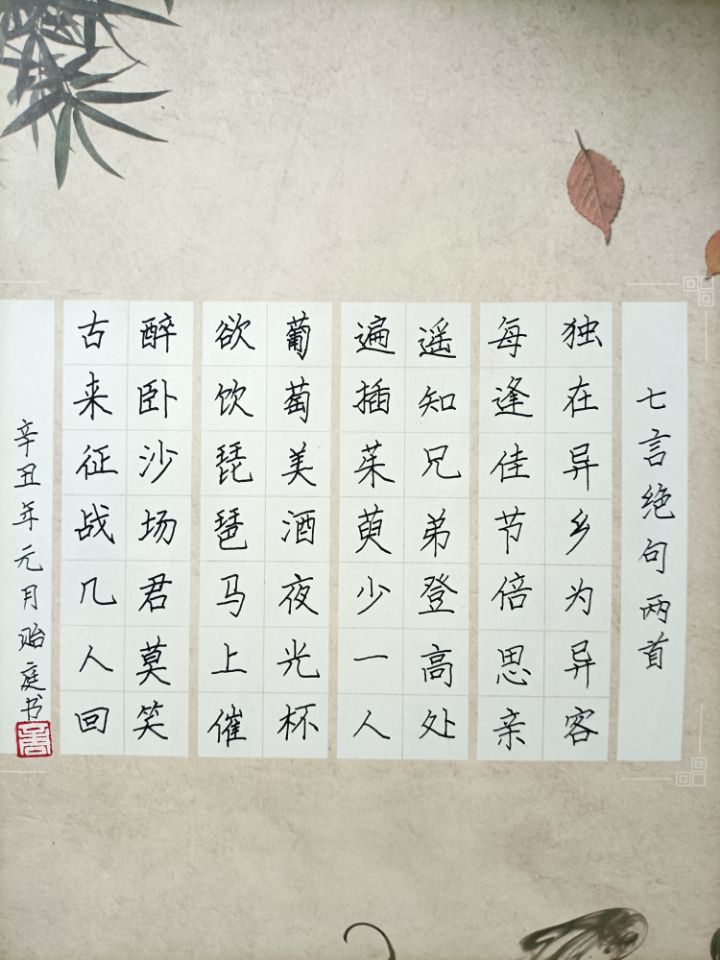 七言绝句两首
独在异乡为异客
每逢佳节倍思亲
遥知兄弟登高处
遍插茱萸少一人
葡萄美酒夜光杯
欲饮琵琶马上催
醉卧沙场君莫笑
古来征战几人回
辛丑年元月贻庭书